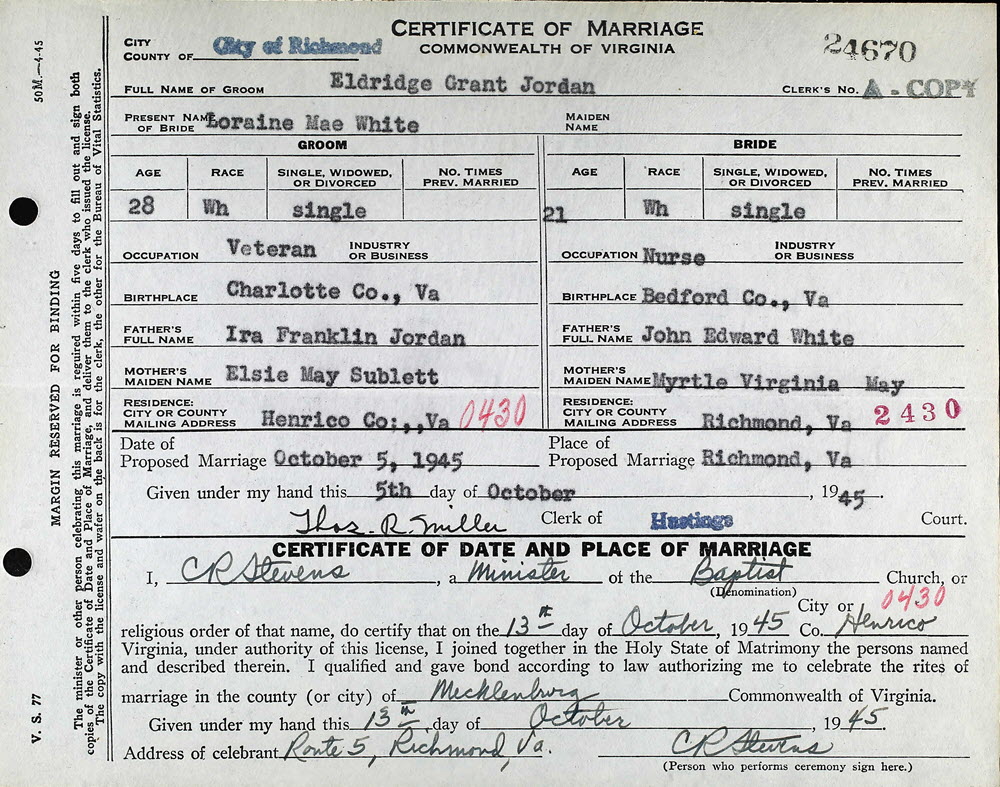 CERTIFICATE OF MARRIAGE
COMMONWEALTH OF VIRGINIA
CITY
COUNTY OF City of Richmond
24670
FULL NAME OF GROOM Eldridge Grant Jordan CLERK'S NO. A - COPY
PRESENT NAME OF BRIDE Loraine Mae White MAIDEN NAME
GROOM BRIDE
AGE RACE SINGLE, WIDOWED, OR DIVORCED NO. TIMES PREV. MARRIED AGE RACE SINGLE, WIDOWED, OR DIVORCED NO. TIMES PREV. MARRIED
28 Wh single 21 Wh single
OCCUPATION Veteran INDUSTRY OR BUSINESS OCCUPATION Nurse INDUSTRY OR BUSINESS
BIRTHPLACE Charlotte Co., Va BIRTHPLACE Bedford Co., Va
FATHER'S FULL NAME Ira Franklin Jordan FATHER'S FULL NAME John Edward White
MOTHER'S MAIDEN NAME Elsie May Sublett MOTHER'S MAIDEN NAME Myrtle Virginia May
RESIDENCE: CITY OR COUNTY MAILING ADDRESS Henrico Co:,,Va 0430 RESIDENCE: CITY OR COUNTY MAILING ADDRESS Richmond, Va 2430
Date of Proposed Marriage October 5, 1945 Place of Proposed Marriage Richmond, Va
Given under my hand this 5th day of October, 1945.
Thos. R. Miller Clerk of Hustings Court.
CERTIFICATE OF DATE AND PLACE OF MARRIAGE
I, CR Stevens, a Minister of the Baptist Church, or
(Denomination)
City or 0430
religious order of that name, do certify that on the 13th day of October, 1945 Co. Henrico
Virginia, under authority of this license, I joined together in the Holy State of Matrimony the persons named
and described therein. I qualified and gave bond according to law authorizing me to celebrate the rites of
marriage in the county (or city) of Mecklenburg Commonwealth of Virginia.
Given under my hand this 13th day of October, 1945.
Address of celebrant Route 5, Richmond, Va. CR Stevens
(Person who performs ceremony sign here.)
50M.—4-45
MARGIN RESERVED FOR BINDING
V. S. 77
The minister or other person celebrating this marriage is required within five days to fill out and sign both
copies of the Certificate of Date and Place of Marriage, and deliver them to the clerk who issued the license.
The copy with the license and wafer on the back is for the clerk, the other for the Bureau of Vital Statistics.